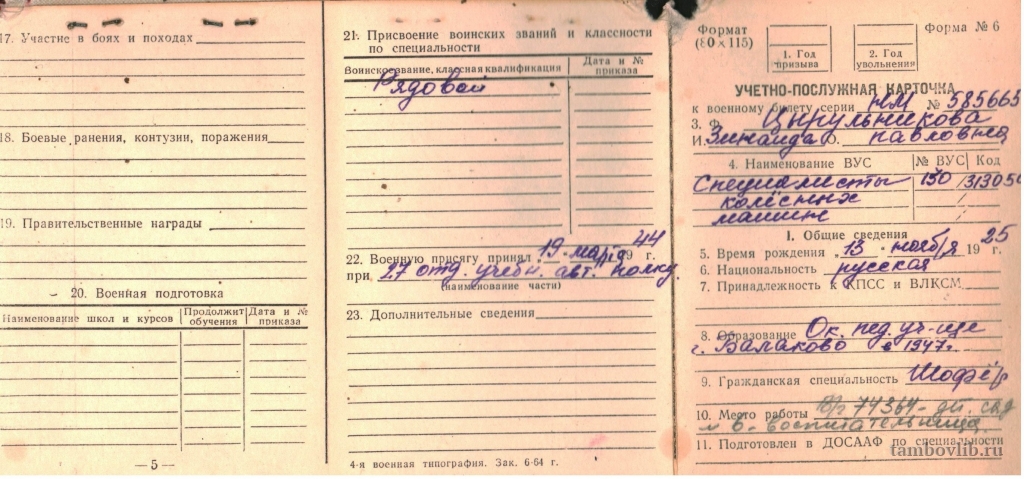 17. Участие в боях и походах
18. Боевые ранения, контузии, поражения
19. Правительственные награды
20. Военная подготовка
Наименование школ и курсов | Продолжит обучения | Дата и № приказа
— 5 —
21. Присвоение воинских званий и классности
по специальности
Воинское звание, классная квалификация | Дата и № приказа
Рядовой
22. Военную присягу принял „19" марта 1944 г.
при 27 отд. учебн. авт. полку
(наименование части)
23. Дополнительные сведения
4-я военная типография. Зак. 6-64 г.
Формат
(80 × 115)
1. Год призыва
2. Год увольнения
Форма № 6
УЧЕТНО-ПОСЛУЖНАЯ КАРТОЧКА
к военному билету серии НМ № 585665
3. Ф. Цирульникова
И. Зинаида О. Павловна
4. Наименование ВУС | № ВУС | Код
Специалисты 150
колёсных
машин
I. Общие сведения
5. Время рождения „13" ноября 1925 г.
6. Национальность русская
7. Принадлежность к КПСС и ВЛКСМ
8. Образование Ок. пед. уч-ще
г. Балаково в 1947г.
9. Гражданская специальность Шофёр
10. Место работы в/ч 74364 - дт. сад
воспитательница
11. Подготовлен в ДОСААФ по специальности
tambovlib.ru